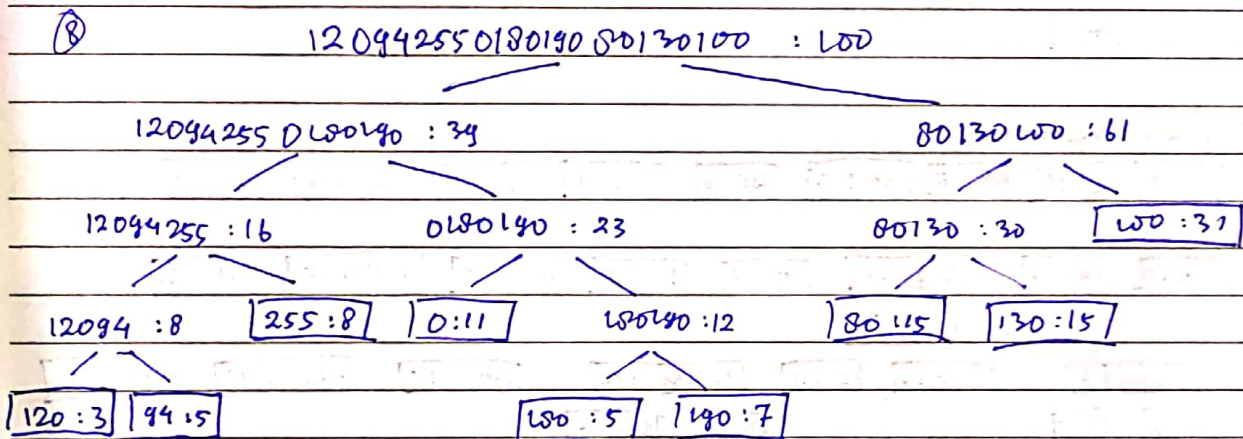 ⑧ 12094255018019080130100 : 100
120942550180190 : 39 80130100 : 61
12094255 : 16 0180190 : 23 80130 : 30 100 : 31
12094 : 8 255 : 8 0 : 11 180190 : 12 80 : 15 130 : 15
120 : 3 94 : 5 180 : 5 190 : 7